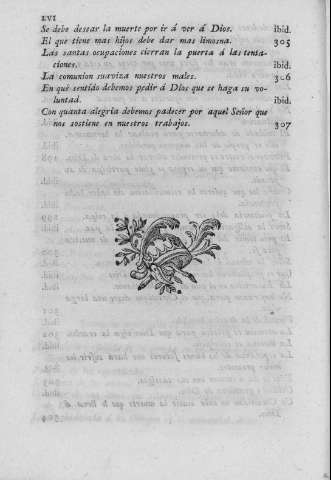 LVI
Se debe desear la muerte por ir á ver á Dios. ibid.
El que tiene mas hijos debe dar mas limosna. 305
Las santas ocupaciones cierran la puerta á las tenta-
ciones. ibid.
La comunion suaviza nuestros males. 306
En qué sentido debemos pedir á Dios que se haga su vo-
luntad. ibid.
Con quánta alegría debemos padecer por aquel Señor que
nos sostiene en nuestros trabajos. 307